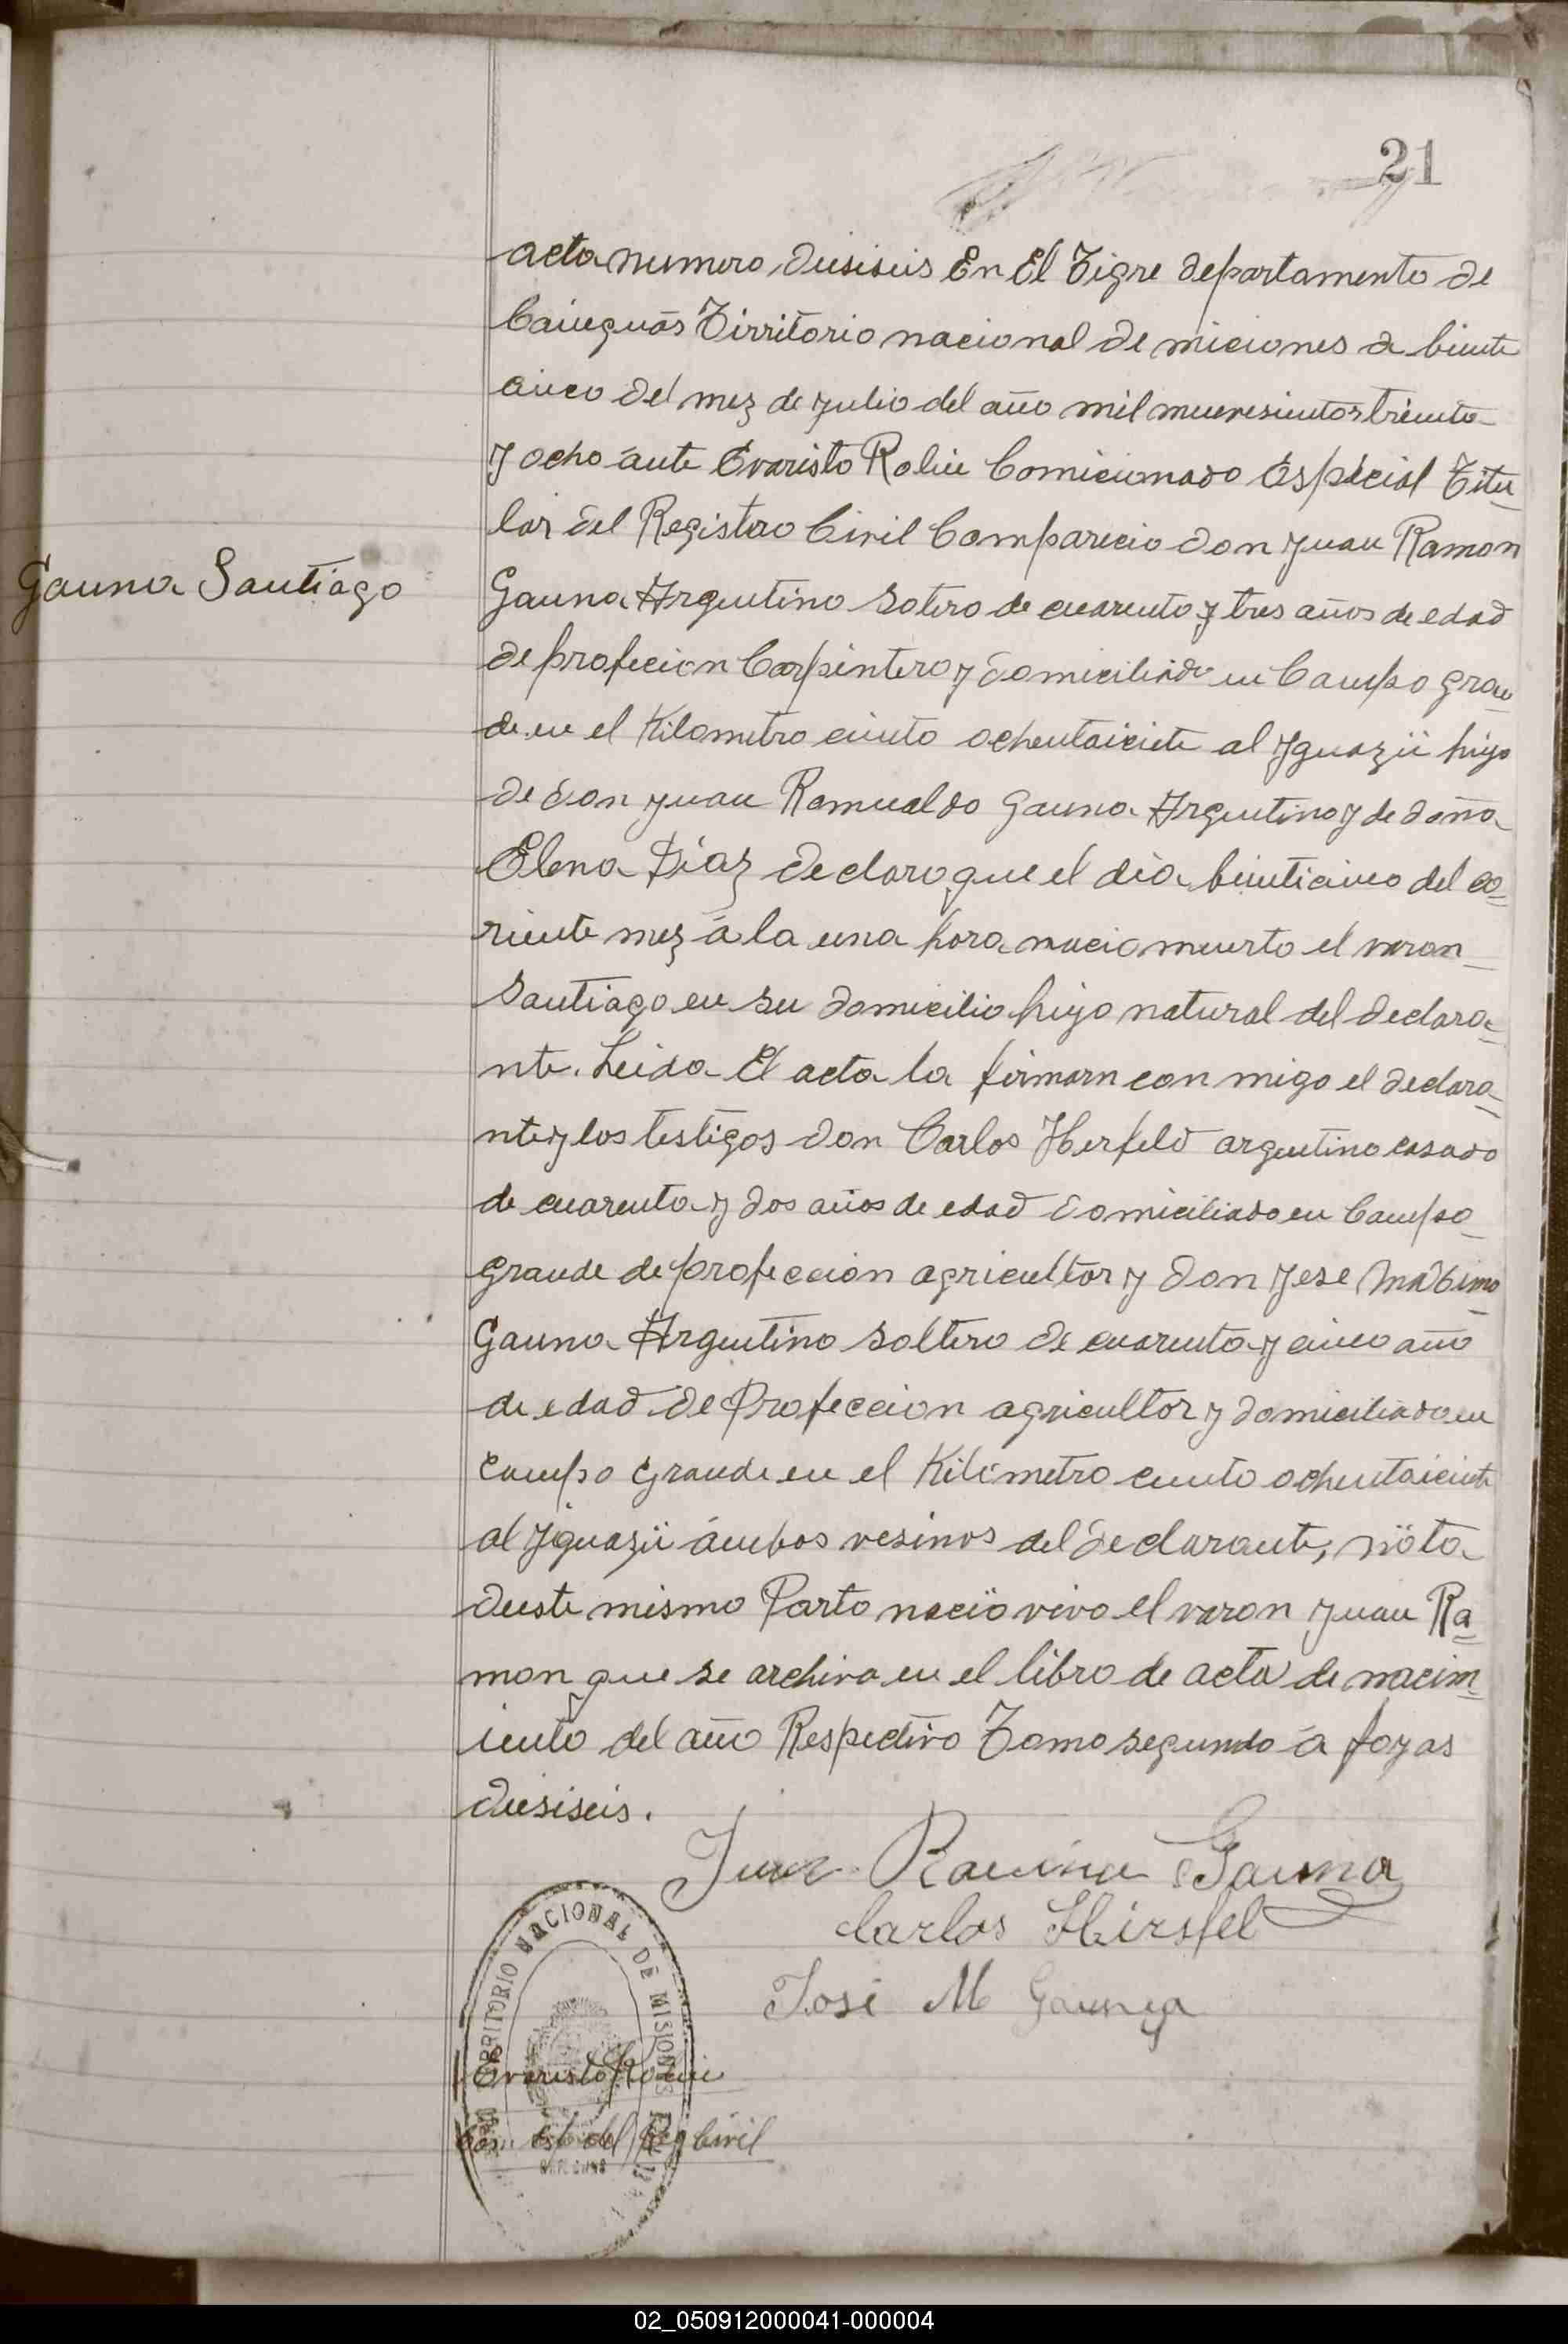 21
acta numero diesiseis En El Tigre departamento de
Cainguás Tirritorio nacional de miciones a biinte
cinco del mez de julio del año mil nuevesientos trienta
y ocho ante Evaristo Rolin Comicionado Espécial Titu-
lar del Registro Civil Comparicio don Juan Ramon
Gauna Santiago
Gauna Argentino sotero de cuarenta y tres años de edad
de profecion Carpintero y domiciliado en Campo gran
de en el Kilometro ciento ochentaiciete al Iguazú hijo
de don Juan Ramualdo Gauna Argentino y de doña
Elena Díaz declaro que el dia beinticinco del co-
riente mez á la una hora nacio muerto el varon
Santiago en su domicilio hijo natural del declara-
nte. Leida El acta la firmarn con migo el declara-
nte y los testigos don Carlos Herfeld argentino casado
de cuarenta y dos años de edad domiciliado en Campo
grande de profeccion agricultor y don Jose Maximo
Gauna Argentino soltero de cuarenta y cinco año
de edad de Profeccion agricultor y domiciliado en
campo grande en el Kilómetro ciento ochentaiciete
al Iguazú ámbos vesinos del declarante, nóta
deeste mismo Parto nació vivo el varon Juan Ra-
mon que se archiva en el libro de acta de nacim-
iento del año Respectivo Tomo segundo á fojas
diesiseis.
Juan Ramón Gauna
Carlos Hirsfel
José M Gauna
TERRITORIO NACIONAL DE MISIONES
Evaristo Rolin
Com Esb del Reg Civil
02_050912000041-000004